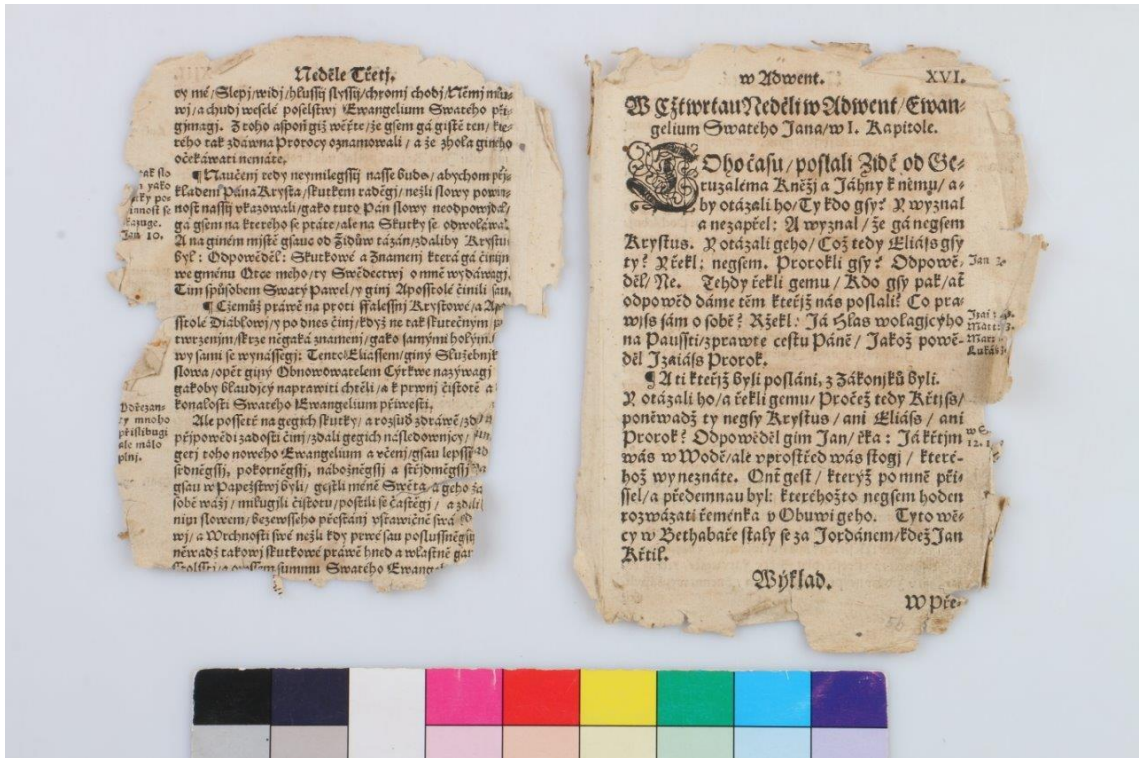 Neděle Třetj.
cy mé/Slepj/widj/hlussij slyssij/chromj chodj/Němj mlu-
wj/a chudj weselé poselstwj Ewangelium Swatého při-
gjmagj. Z toho aspoň giž wěřte/že gsem gá gistě ten/kte-
rého tak zdáwna Prorocy oznamowali/a že zhola giného
očekáwati nemáte.
¶ Naučenj tedy neymilegssij nasse budo/abychom přj-
kladem Pána Krysta/skutkem radčgj/nežli slowy powin-
nost nassij vkazowali/gako tuto Pán slowy neodpowjdal/
gá gsem na kterého se ptáte/ale na Skutky se odwoláwal.
A na giném mjstě gsauc od Židůw tázán/zdaliby Krystus
byl: Odpowěděl: Skutkowé a Znamenj která gá činjm
we gménu Otce mého/ty Swědectwj o mně wydáwagj.
Tjm spůsobem Swatý Pawel/y ginj Aposstolé činili sau.
¶ Cžemůž práwě na proti ffalessnj Krystowé/a Apo-
sstolé Diáblowj/y po dnes činj/když ne tak skutečným
twrzenjm/skrze něgaká znamenj/gako samými holými
wy sami se wynássegj: Tento Eliassem/giný Služebnjk
slowa/opět giný Obnowowatelem Cýrkwe nazýwagj
gakoby blaudjcý naprawiti chtěli/a k prwnj čistotě a
konalosti Swatého Ewangelium přiwesti.
Ale possetě na gegich skutky/a rozsuď zdráwě/zd
přjpowědi zadosti činj/zdali gegich následownjcy/
getj toho nowého Ewangelium a včenj/gsau lepssij
srdněgssij, pokorněgssij, nábožněgssij a střjdmegssij
gsau w Papežstwj byli/ gestli méně Swěta a geho
sobě wážj/ milugjli čistotu/postjli se častěgj/ a zdali
nim slowem/bezewsseho přestánj vstawičně swá
wj/a Wrchnosti swé nežli kdy prwé sau poslussněgssij
něwadž takowj skutkowé práwě hned a wlastně
summu Swatého Ewangel
yako
Jan 10.
mnoho
přislibugj
ale málo
plnj.
w Adwent. XVI.
W Cžtwrtau Neděli w Adwent/Ewan-
gelium Swatého Jana/w I. Kapitole.
TOho času/poslali Židé od Ge-
ruzaléma Kněžj a Jáhny k němu/a-
by otázali ho/Ty kdo gsy? Y wyznal
a nezapřel: A wyznal/že gá negsem
Krystus. Y otázali geho/Což tedy Eliáss gsy
ty? Y řekl; negsem. Prorokli gsy? Odpowě-
děl/Ne. Tehdy řekli gemu/Kdo gsy pak/ať
odpowěd dáme těm kteřjž nás poslali? Co pra-
wjs sám o sobě? Ržekl: Já Hlas wolagjcýho
na Paussti/zprawte cestu Páně/Jakož powě-
děl Izaiáss Prorok.
¶ A ti kteřjž byli posláni, z Zákonjků byli.
Y otázali ho/a řekli gemu/Pročež tedy Křtjss/
poněwadž ty negsy Krystus/ani Eliáss/ani
Prorok? Odpowěděl gim Jan/řka: Já křtjm
wás w Wodě/ale vprostřed wás stogj/které-
hož wy neznáte. Onť gest/kterýž po mně při-
ssel/a předemnau byl: kteréhožto negsem hoden
rozwázati řeménka v Obuwi geho. Tyto wě-
cy w Bethabaře staly se za Jordánem/kdež Jan
Křtil.
Wýklad.
W Pře-
Jan
Matt: 3.